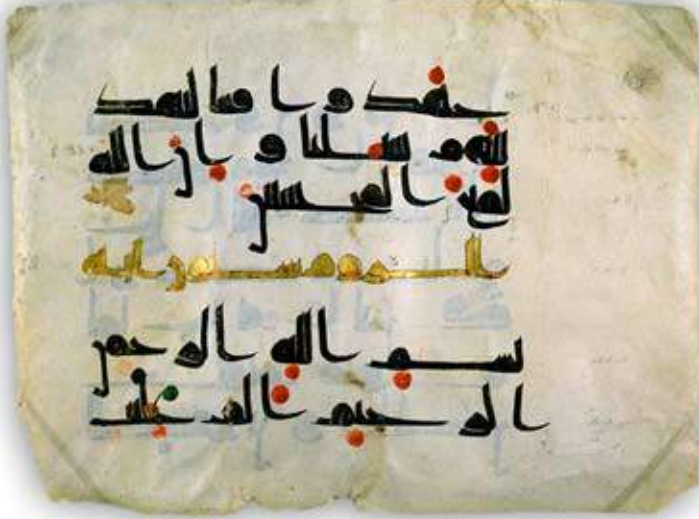 جهدوا فينا لنهد
ينهم سبلنا و ان الله
لمع المحسنين
الروم ستون اية
بسم الله الرحمن
الرحيم الم غلبت